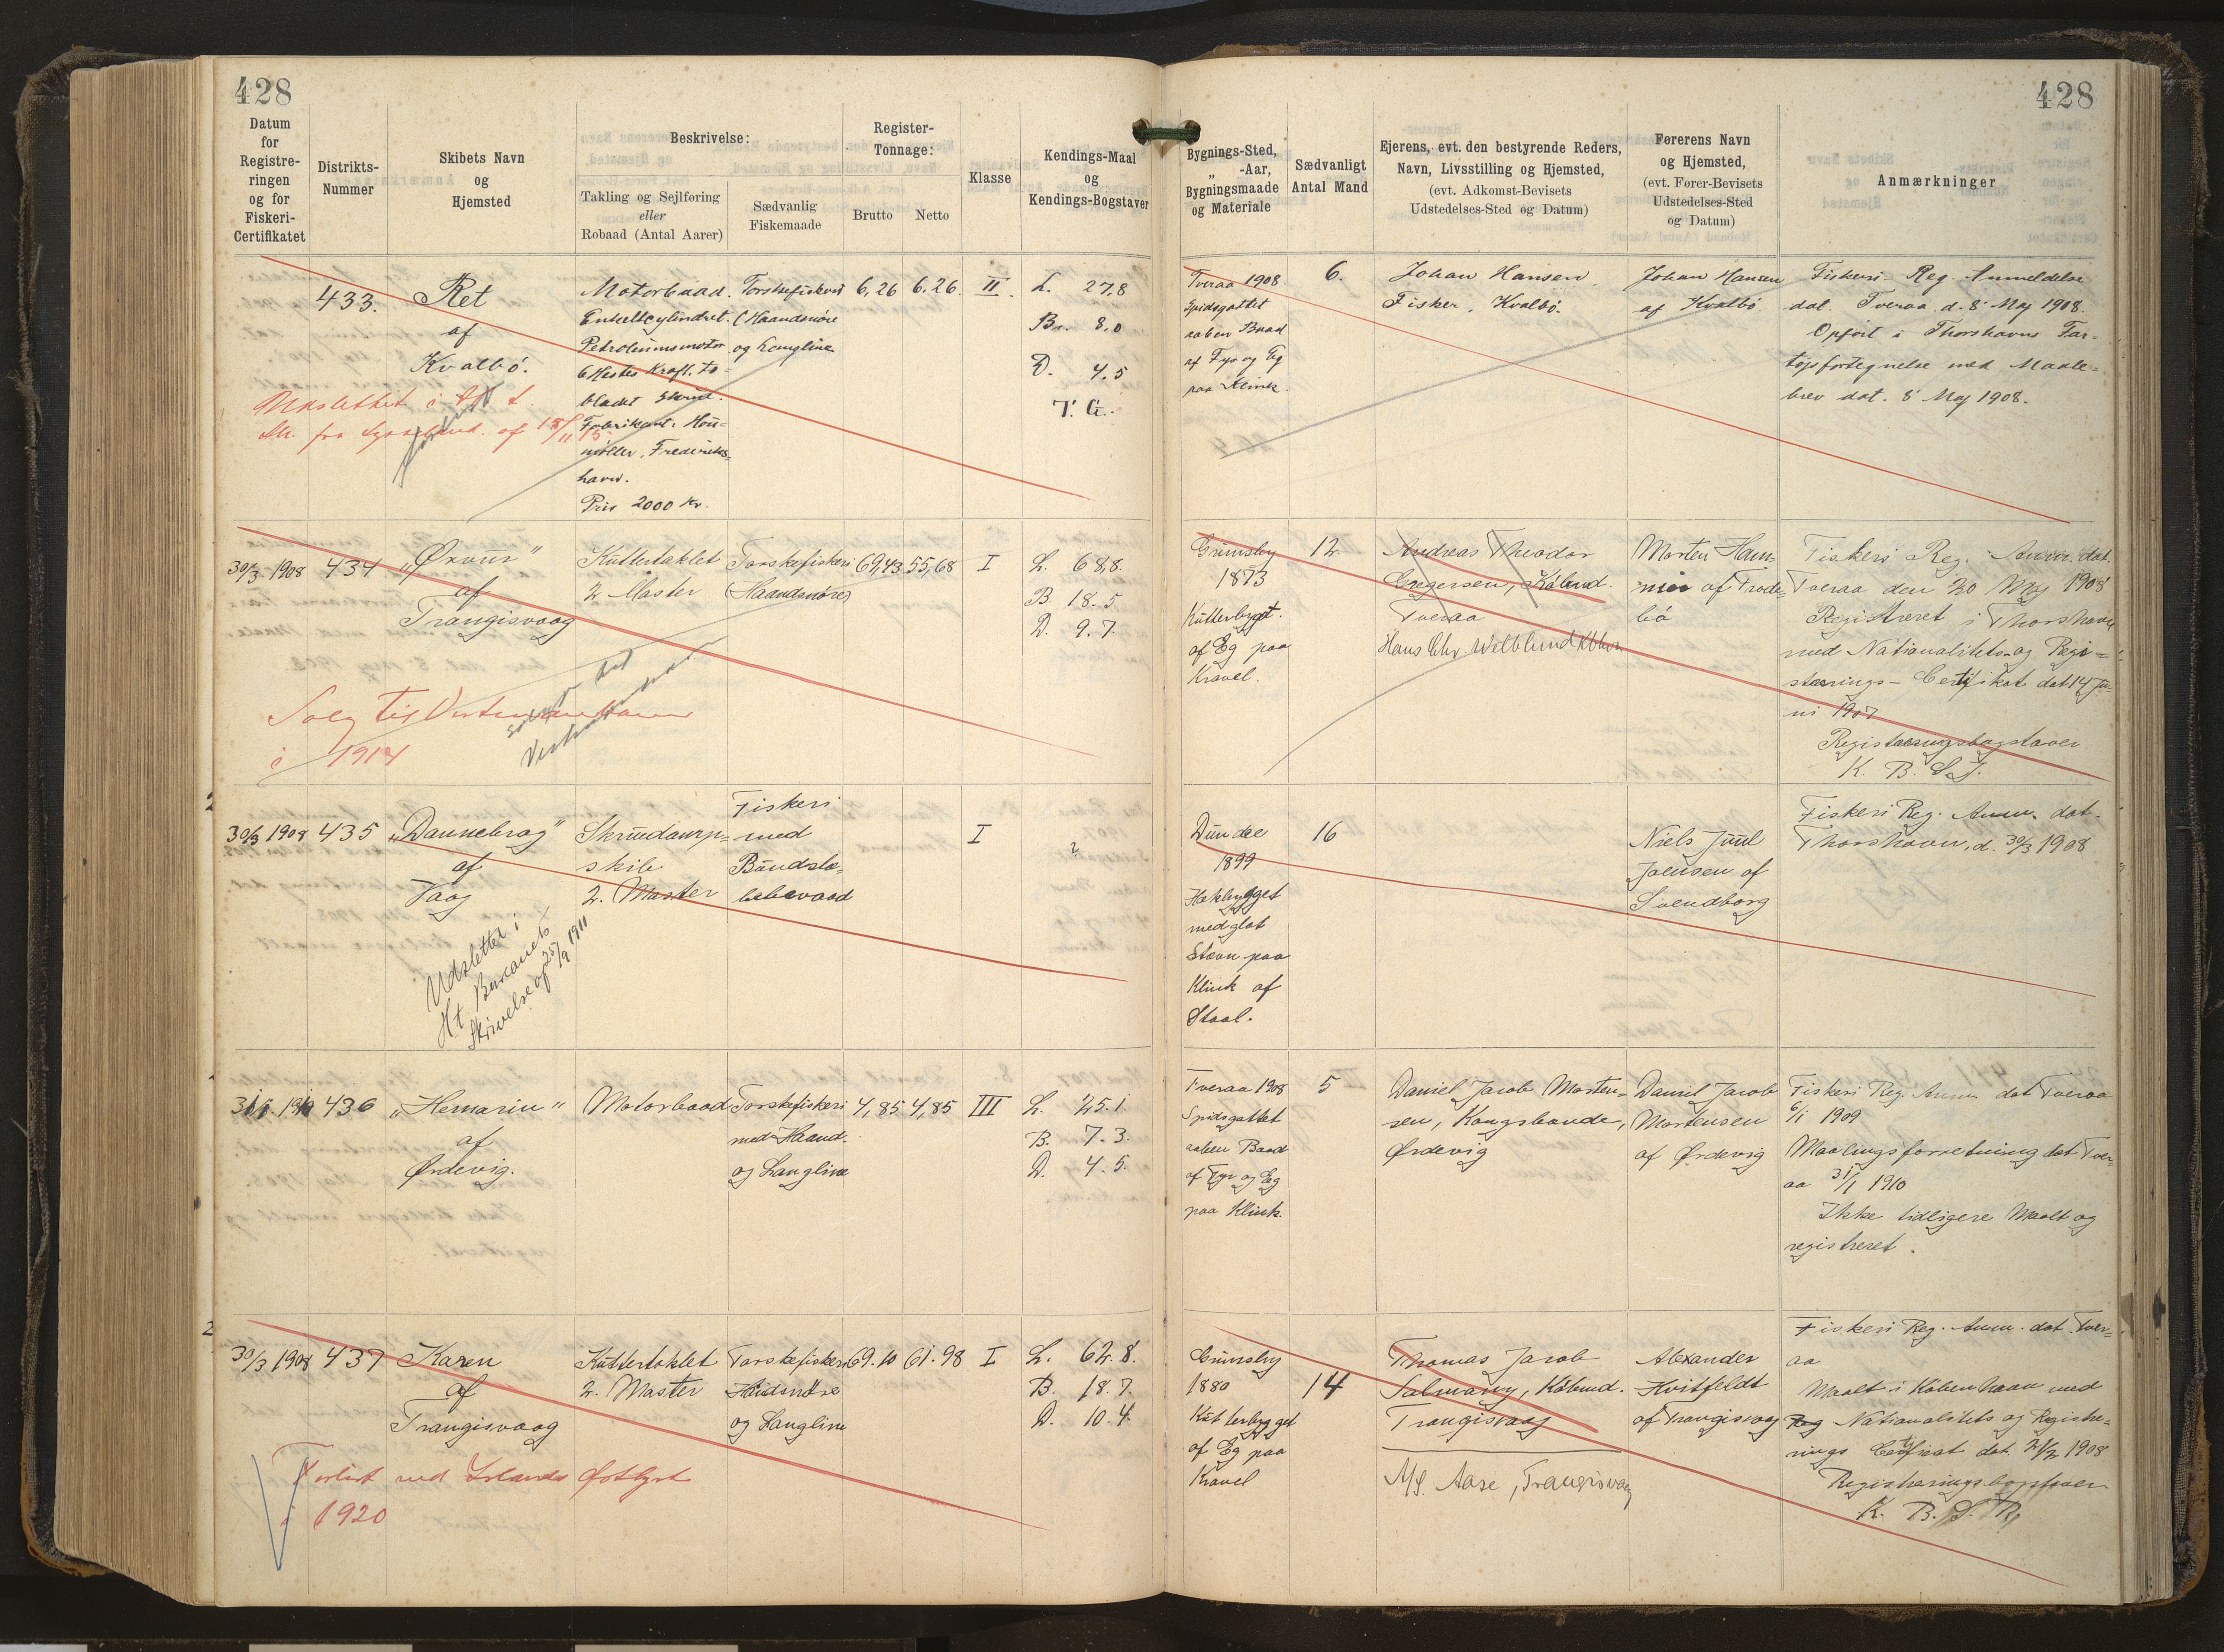 428
428
Datum
for
Registre-
ringen
og for
Fiskeri-
Certifikatet
Distrikts-
Nummer
Skibets Navn
og
Hjemsted
Beskrivelse:
Takling og Sejlføring
eller
Robaad (Antal Aarer)
Sædvanlig
Fiskemaade
Register-
Tonnage:
Brutto
Netto
Klasse
Kendings-Maal
og
Kendings-Bogstaver
Bygnings-Sted,
„ -Aar,
Bygningsmaade
og Materiale
Sædvanligt
Antal Mand
Ejerens, evt. den bestyrende Reders,
Navn, Livsstilling og Hjemsted,
(evt. Adkomst-Bevisets
Udstedelses-Sted og Datum)
Førerens Navn
og Hjemsted,
(evt. Fører-Bevisets
Udstedelses-Sted
og Datum)
Anmærkninger
433.
Ret
af
Kvalbø.
Udslettet i
fra Sysselmd. af 15/11 15
Motorbaad.
Enkeltcylindret.
Petroleumsmotor
6 Hestes Kraft. to-
bladet Skrue.
Fabrikant: Hou-
møller, Frederiks-
havn.
Pris 2000 Kr.
Torskefiskeri
(Haandsnøre
og Langline
6,26
6.26.
II.
L. 27,8
Br. 8,0
D. 4,5
T. G.
Tveraa 1908
Spidsgattet
aaben Baad
af Fyr og Eg
paa Klink.
6.
Johan Hansen
Fisker, Kvalbø.
Johan Hansen
af Kvalbø
Fiskeri Reg. Anmeldelse
dat. Tveraa, d. 8' Maj 1908.
Opført i Thorshavns Far-
tøjsfortegnelse med Maale-
brev dat. 8' Maj 1908.
30/3 1908
434
„Ørnur"
af
Trangisvaag
Solg til Vestmanhavn
i 1914
Kuttertaklet
2 Master
Torskefiskeri
(Haandsnøre)
69,43
55,68
I
L. 68,8.
B 18.5
D. 9.7.
Grimsby
1873
Kutterbygt.
af Eg paa
Kravel.
12
Andreas Theodor
Gregersen, Købmd.
Tveraa
Hans Chr. Kbhvn
Morten Ham-
mer af Frode-
bø
Fiskeri Reg. Anm. dat.
Tveraa den 20 Maj 1908
Registreret i Thorshavn
med Nationalitets- og Regi-
strerings- Certifikat dat 14 Ju-
ni 1907
Registreringsbogstaver
K. B. S. J.
30/3 1908
435
„Dannebrog"
af
Vaag
Udslettet i
Ht. Bureauets
Skrivelse af 25/9 1911
Skruedamp-
skib
2. Master
Fiskeri
med
Bundslæ-
bebevaad
I
?
Dundee
1899
Hekbygget
med glat
Stævn paa
Klink af
Staal.
16
Niels Juul
Jensen af
Svendborg
Fiskeri Reg. Anm. dat.
Thorshavn, d. 30/3 1908
436
„Hemarin"
af
Ørdevig.
Motorbaad
Torskefiskeri
med Haand.
og Langline
4,85
4,85
III
L. 25.1
B. 7.3.
D. 4.5.
Tveraa 1908
Spidsgattet
aaben Baad
af Fyr og Eg
paa Klink.
5
Daniel Jacob Morten-
sen, Kongsbonde,
Ørdevig
Daniel Jacob
Mortensen
af Ørdevig
Fiskeri Reg. Anm dat Tveraa
6/1 1909
Maalingsforretning dat Tver-
aa 31/1 1910
Ikke tidligere Maalt og
registreret.
30/3 1908
437
Karen
af
Trangisvaag
Forlist ved Islands Østkyst
i 1920
Kuttertaklet
2. Master
Torskefiskeri
Haandsnøre
og Langline
69.10
61.98
I
L. 62.8.
B. 18.7.
D. 10.4.
Grimsby
1880
Kutterbygget
af Eg paa
Kravel
14
Thomas Jacob
Købmd.
Trangisvaag
A/S. Aase, Trangisvaag
Alexander
Hvitfeldt
af Trangisvaag
Fiskeri Reg. Anm. dat. Tver-
aa
Maalt i København med
Nationalitets og Registre-
rings Certifikat dat. 21/2 1908
Registreringsbogstaver
K. B. S. R.